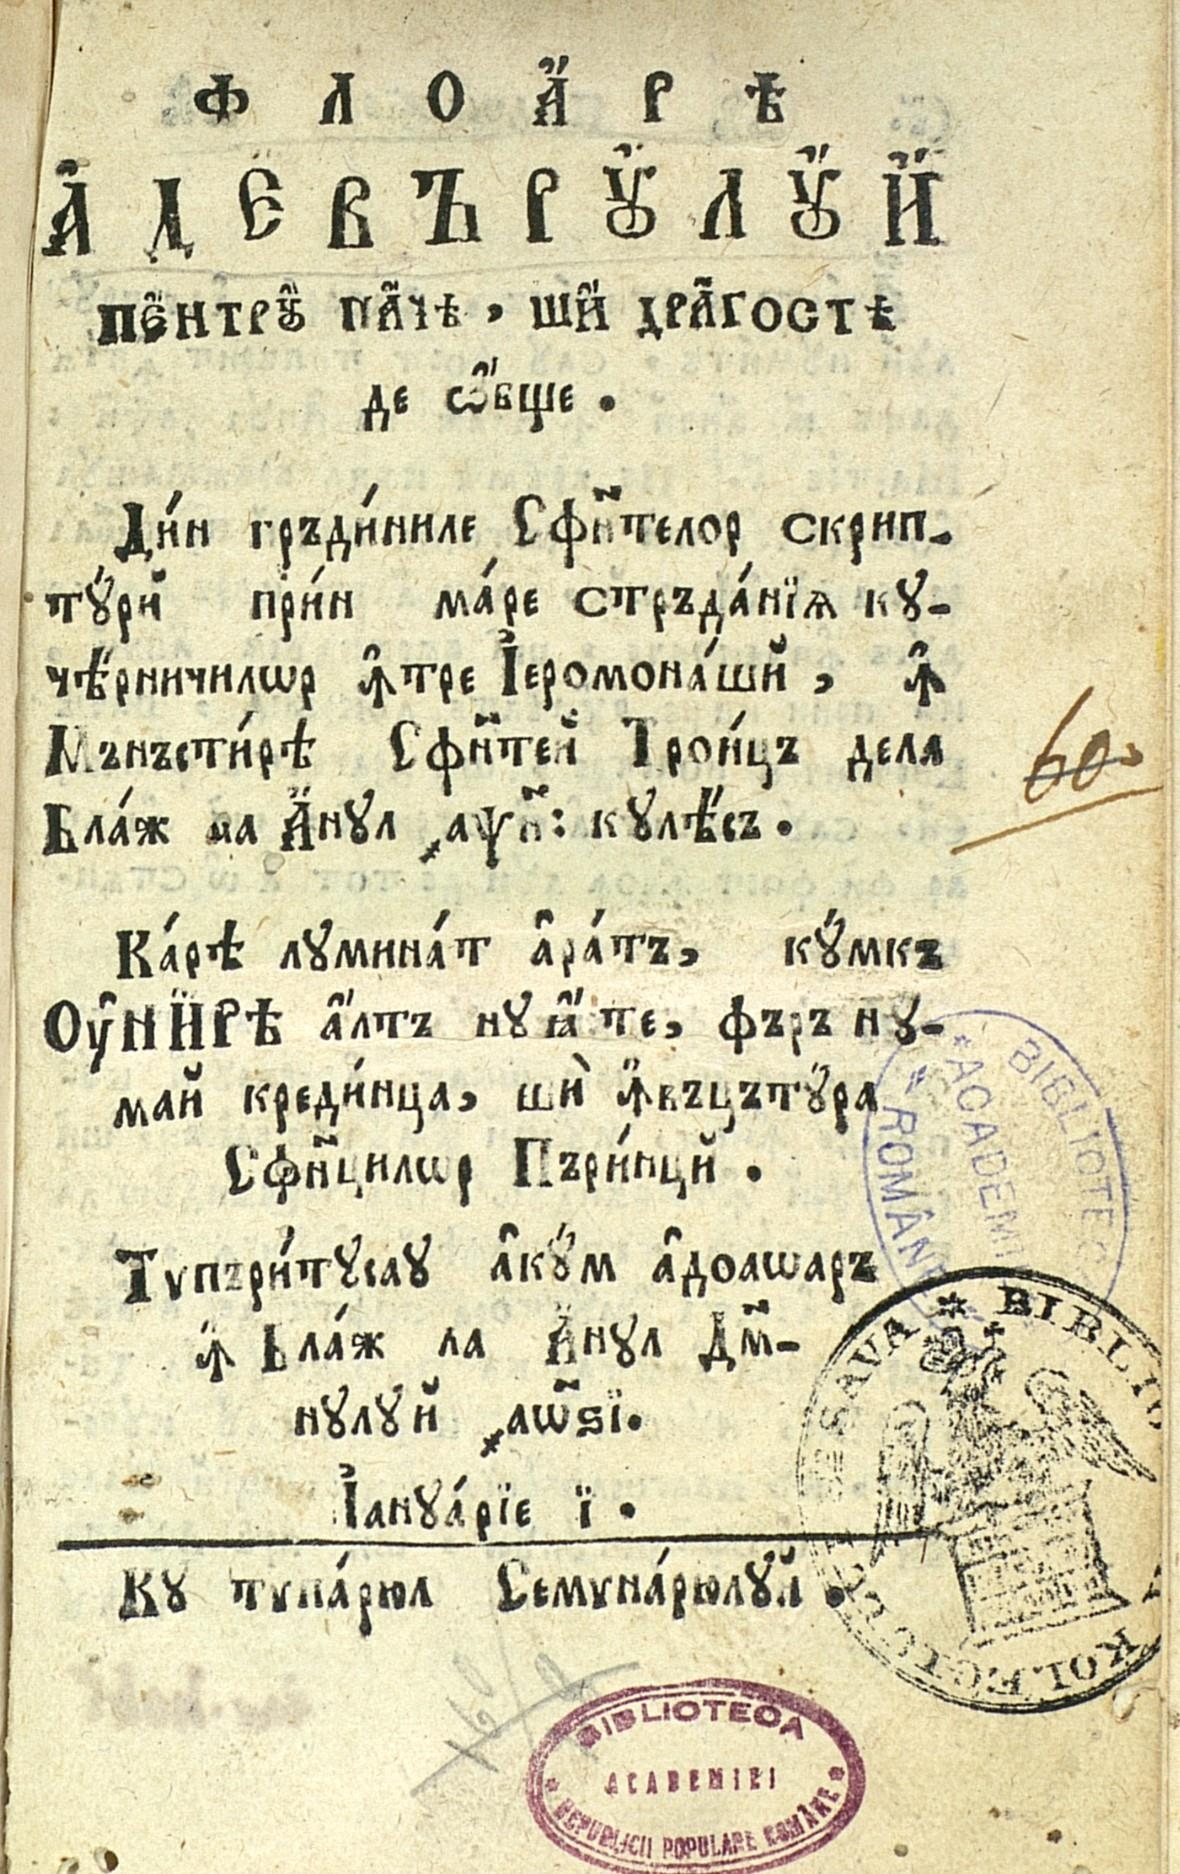 ФЛОА҆́РѢ
А҆ДЕВЪРꙊ́ЛꙊ́Й
ПЕ́НТРꙊ ПА́ЧѢ, ШЍ ДРА́ГОСТѢ
де ѡ҆́бще.
Ди́н гръди́ниле Сфи҃телор скрип-
тꙋ́рй при́н ма́ре стръда́нїѧ кꙋ-
чѣ́рничилѡр ꙟ҆тре І҆еромона́шй, ꙟ҆
Мънъсти́рѣ Сфи҃тей Трои́цъ деля
Бла́ж ла А҆́нꙋл ҂аѱн҃: кꙋлѣ́съ.
Ка́рѣ лꙋмина́т а҆ра́тъ, кꙋ́мкъ
ОУ҆НИ́РѢ а҆́лтъ нꙋꙗ҆́сте, фъръ нꙋ-
май креди́нца, шѝ ꙟ҆въцътꙋ́ра
Сфи҃цилѡр Пъри́нцй.
Тѵпъри́тꙋсаꙋ а҆кꙋ́м а҆доашаръ
ꙟ҆ Бла́ж ла А҆́нꙋл Дм҃-
нꙋлꙋй ҂аѡ҃ѕі.
І҆анꙋа́рїе ї.
Кꙋ тѵпа́рюл Семѵна́рюлꙋй.
60
BIBLIOTEC
* ACADEM
* ROMÂN
SAVA * BIBLIO
KOLEGIUL
BIBLIOTECA
ACADEMIEI
* REPUBLICII POPULARE ROMÂNE *